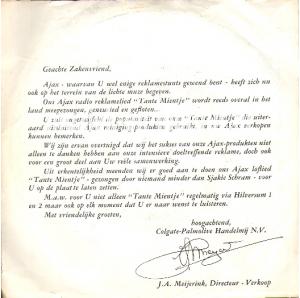 Geachte Zakenvriend,
Ajax - waarvan U wel enige reklamestunts gewend bent - heeft zich nu
ook op het terrein van de lichte muze begeven.
Ons Ajax radio reklamelied "Tante Mientje" wordt reeds overal in het
land meegezongen, geneuried en gefloten.
U zult ongetwijfeld de populariteit van ons "Tante Mientje" die uiter-
aard Ajax reiniging produkten gebracht, in uw Ajax verkopen
kunnen bemerken.
Wij zijn ervan overtuigd dat wij het sukses van onze Ajax-produkten niet
alleen te danken hebben aan onze intensieve doeltreffende reklame, doch ook
voor een groot deel aan Uw reële samenwerking.
Uit erkentelijkheid meenden wij er goed aan te doen ons Ajax loflied
"Tante Mientje" - gezongen door niemand minder dan Sjakie Schram - voor
U op de plaat te laten zetten.
M.a.w. voor U niet alleen "Tante Mientje" regelmatig via Hilversum 1
en 2 maar ook op elk moment dat U er naar wenst te luisteren.
Met vriendelijke groeten,
hoogachtend,
Colgate-Palmolive Handelmij N.V.
J.A. Meijerink, Directeur - Verkoop